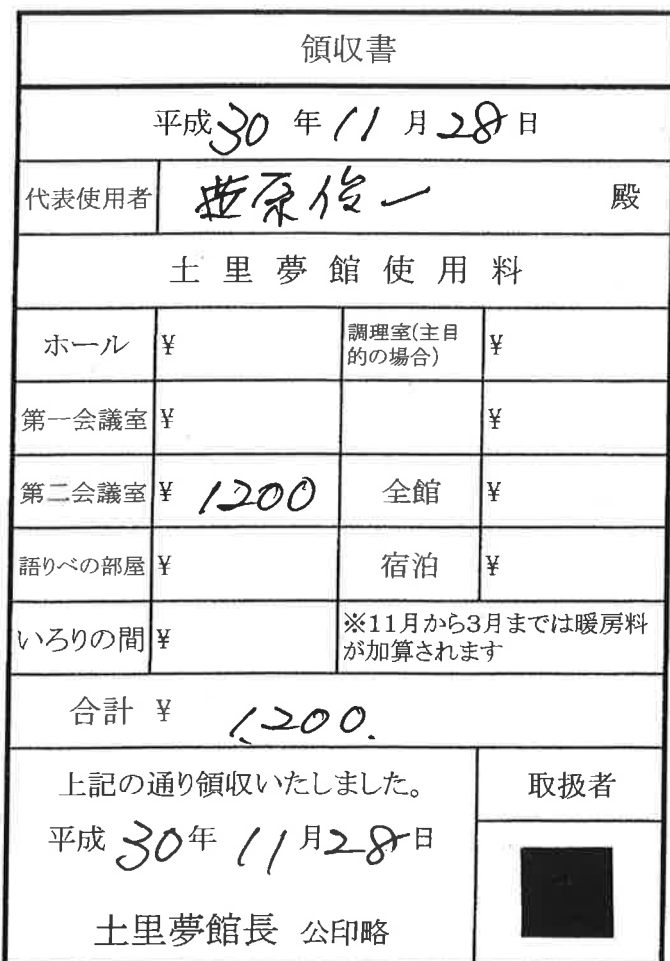 領収書
平成30年11月28日
代表使用者 笹原俊一 殿
土里夢館使用料
ホール ¥ 調理室(主目的の場合) ¥
第一会議室 ¥ ¥
第二会議室 ¥ 1200 全館 ¥
語りべの部屋 ¥ 宿泊 ¥
いろりの間 ¥ ※11月から3月までは暖房料
が加算されます
合計 ¥ 1,200.
上記の通り領収いたしました。 取扱者
平成30年11月28日
土里夢館長 公印略